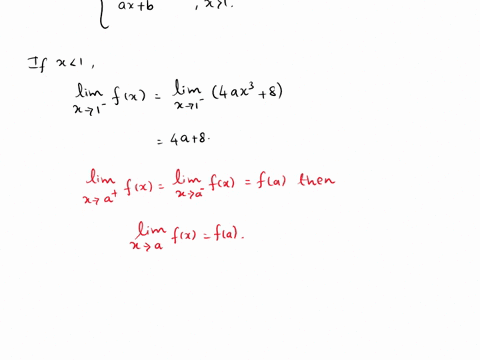 { ax+b , x>1.
If x<1,
lim x→1⁻ f(x) = lim x→1⁻ (4ax³+8)
= 4a+8.
lim x→a⁺ f(x) = lim x→a⁻ f(x) = f(a) then
lim x→a f(x) = f(a).